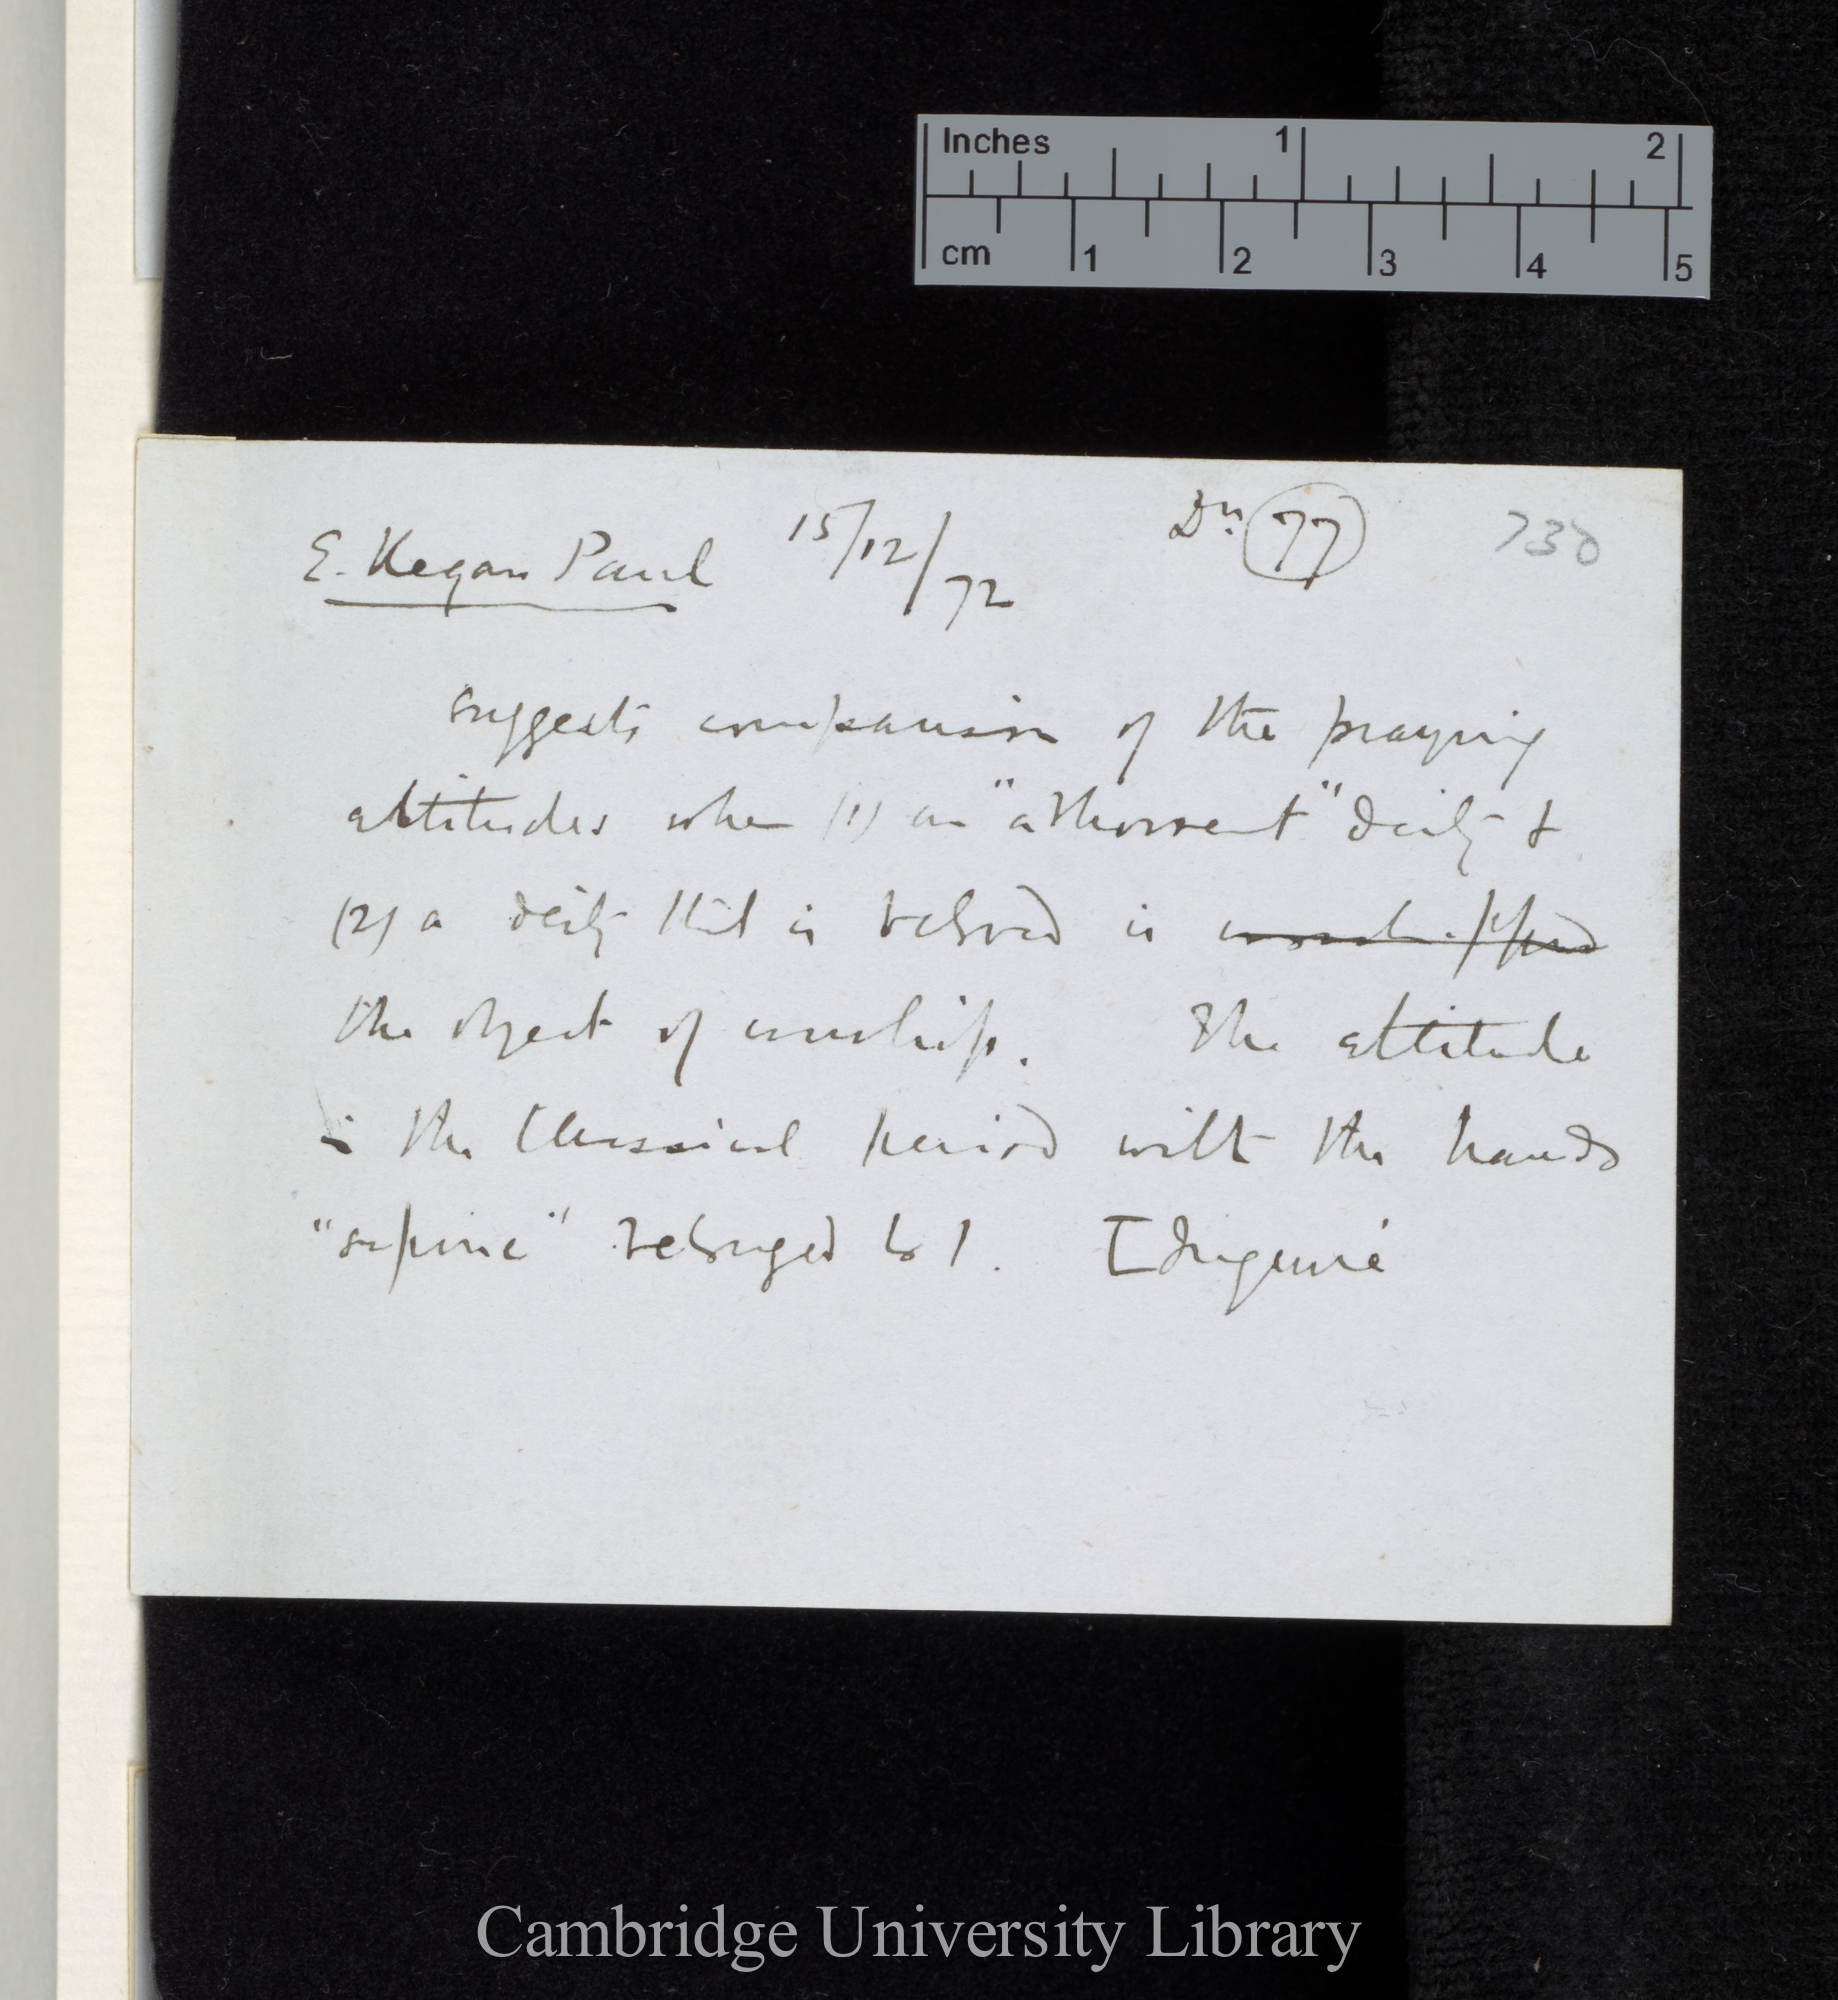 Inches 1 2
cm 1 2 3 4 5
E. Kegan Paul 15/12/72 Dn. 77 730
suggests comparison of the praying
attitudes when (1) an "abhorrent" deity &
(2) a deity that is beloved is worshipped
the object of worship. The attitude
in the Classical period with the hands
"supine" belonged to 1.
Cambridge University Library